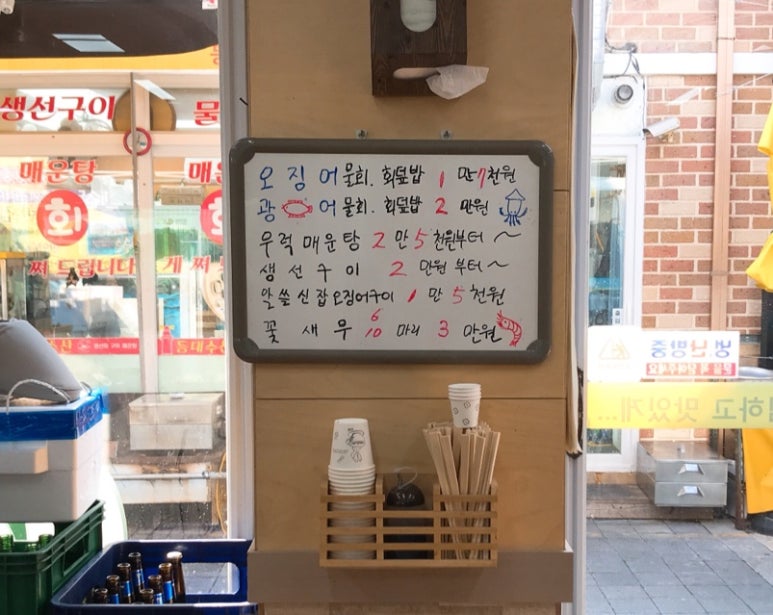 생선구이
물
매운탕
매운
회
회
쪄 드립니다
게 쪄
오징어 물회. 회덮밥 1 만7천원
광 어 물회. 회덮밥 2 만원
우럭매운탕 2만5천원부터 ~
생선구이 2 만원 부터 ~
알쓸신잡 오징어구이 1 만 5 천원
꽃새우 6 10 마리 3 만원
냉.난방중